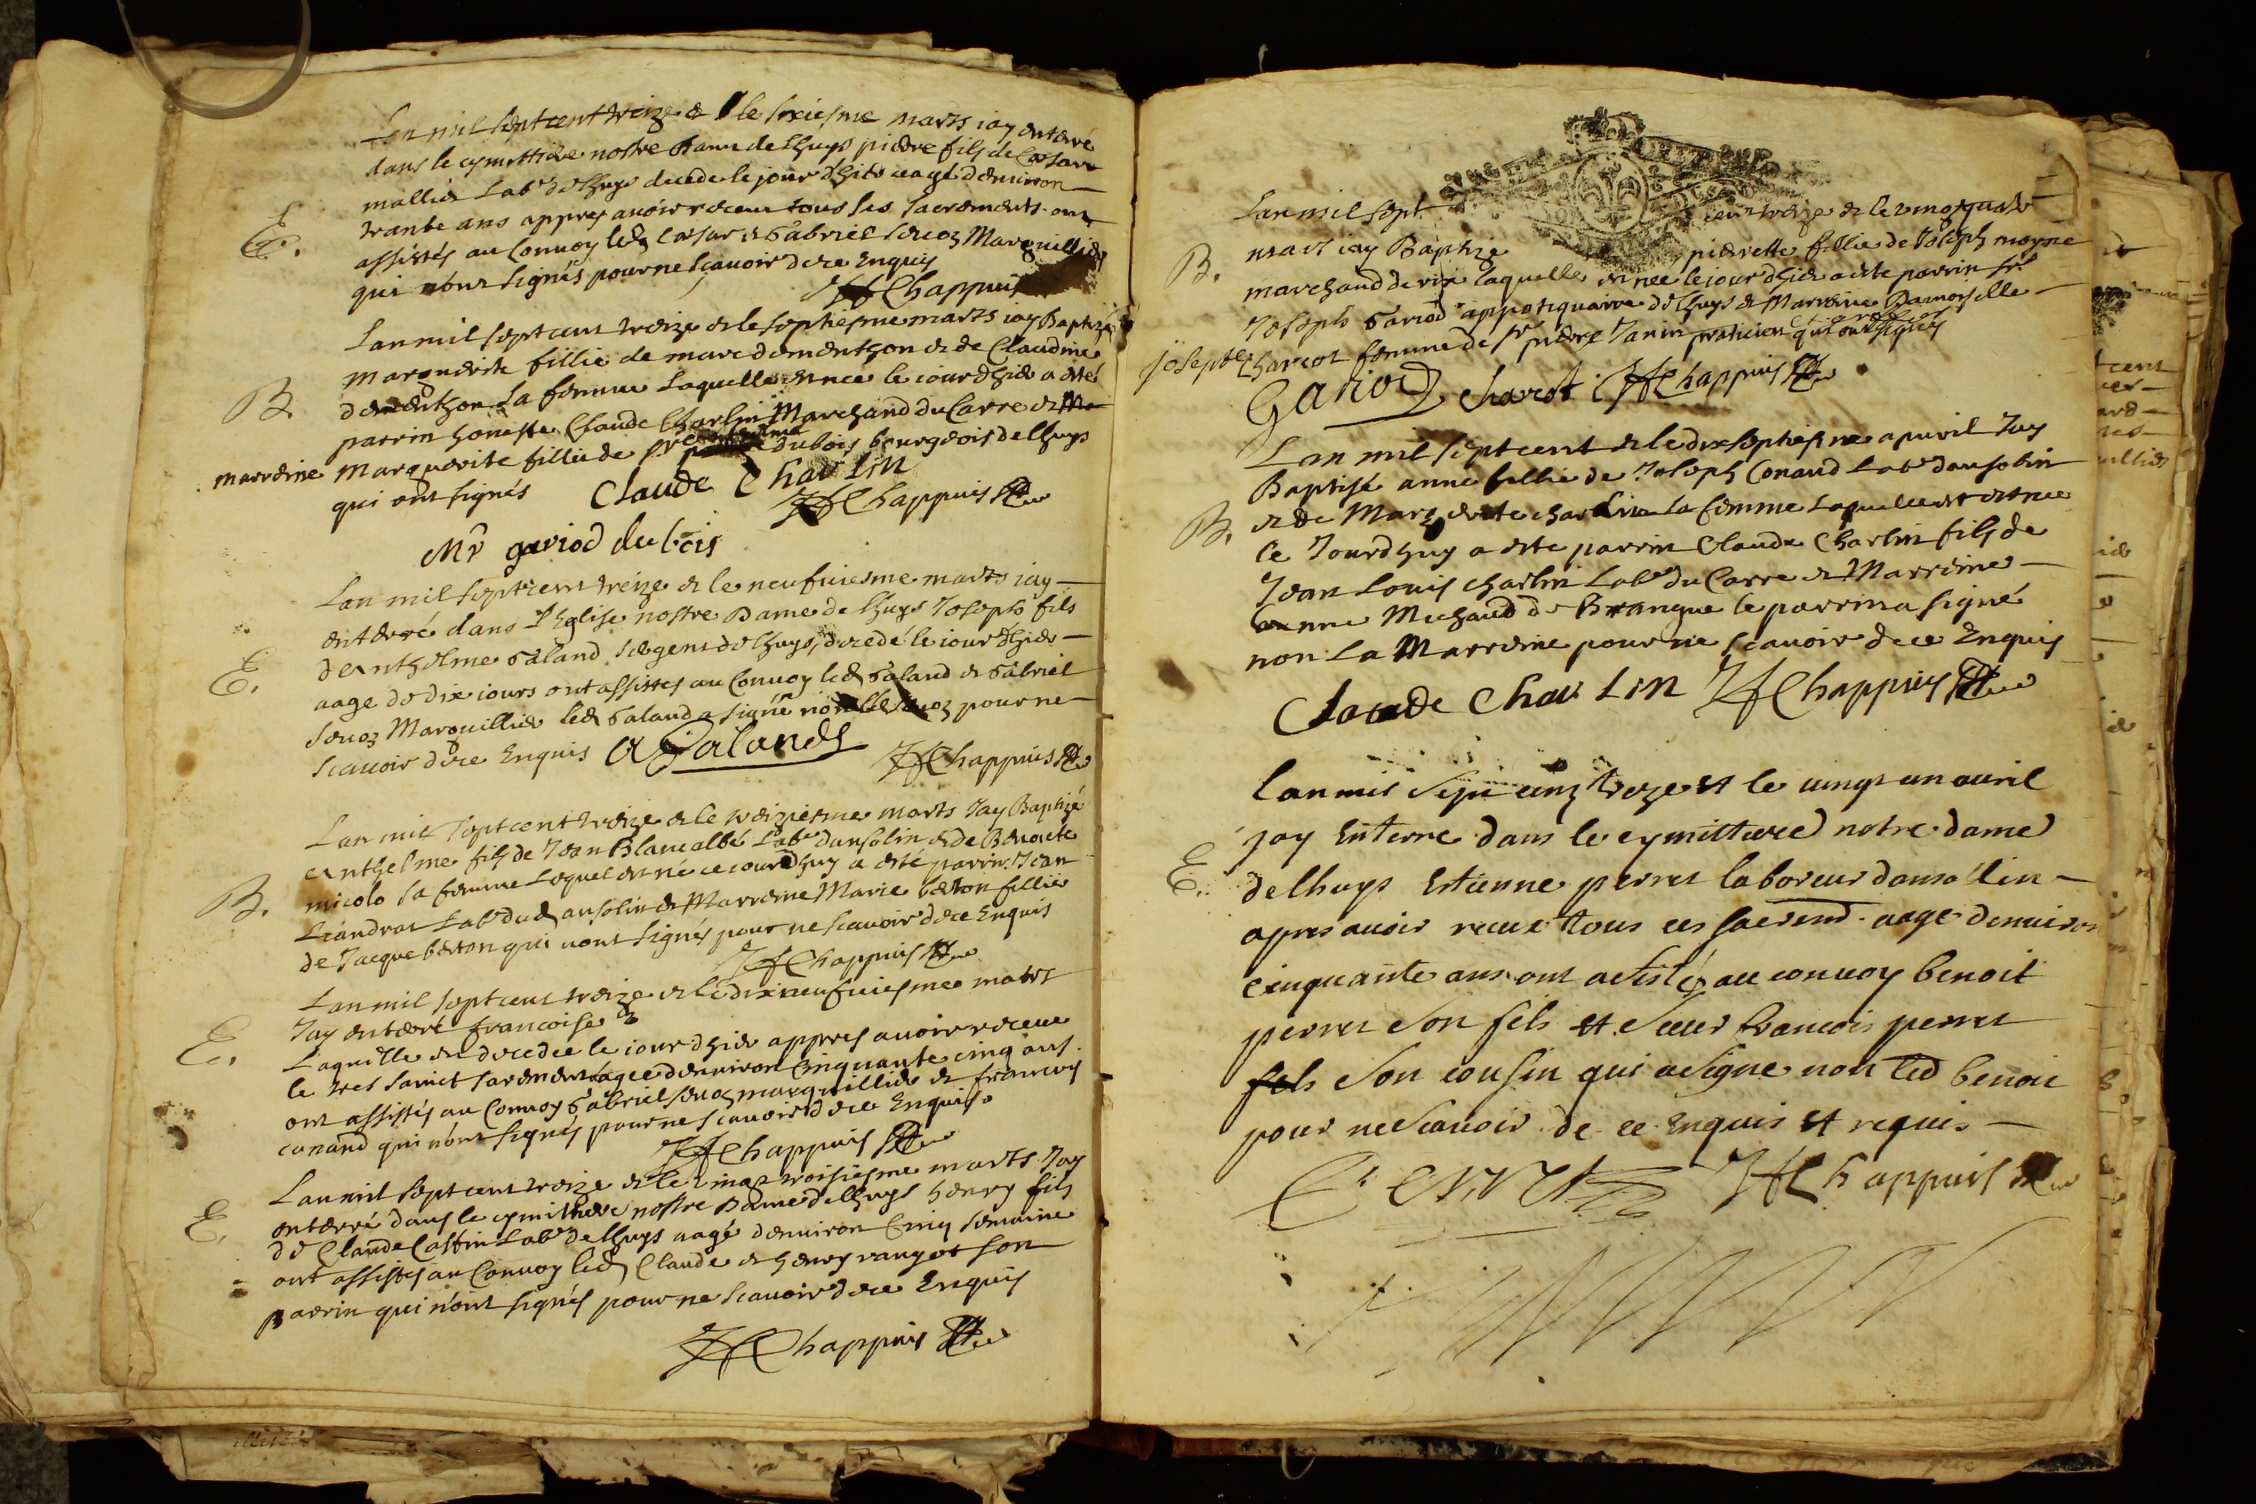 Lan mil sept cent treize & le sixiesme marts iay enterré
dans le cymettiere nostre Dame de Lhuys pierre fils de Cæsar
mallier Labr de Lhuys decede le jour d'hier aagé d'environ
trante ans appres avoir receu tous ses sacrements ont
E. assistés au Convoy led Cæsar & Gabriel Marguillier
qui n'ont signés pour ne scavoir de ce Enquis
Chappuis
Lan mil sept cent treize & le septiesme marts iay Baptizé
marguerite fillie de marc dementhon & de Claudine
B. dementhon sa femme Laquelle est nee le iour d'hier a esté
parrin honeste Claude Charlin Marchand du Carre &
marreine Marguerite fillie de sr dubois bourgeois de Lhuys
qui ont signés Claude Charlin
Chappuis
Mr gariod dubois
Lan mil sept cent treize & le neufuiesme marts iay
enterré dans l'Eglise nostre Dame de Lhuys Joseph fils
E. d'Anthelme Galand sergent de Lhuys, decedé le iour d'hier
aage de dix iours ont assistes au Convoy led Galand & Gabriel
Marguillier led Galand a signé non pour ne
scavoir de ce Enquis A Galand
Chappuis
Lan mil sept cent treize & le treiziesme marts Jay Baptizé
Anthelme fils de Jean Blanc Labr dansolin & de Benoite
B. micolo sa femme Lequel est né ce iourd'huy a esté parrin Jean
Labr dud ansolin & Marreine Marie berton fillie
de Jacque berton qui n'ont signés pour ne scavoir de ce Enquis
Chappuis
Lan mil sept cent treize & le dix neufuiesme marts
E. Jay enterré francoise
Laquelle est decedee le iour d'hier appres avoir receue
le tres sainct sacrement agee d'environ Cinquante cinq ans
ont assistés au Convoy Gabriel marguillier & francoys
conand qui n'ont signés pour ne scavoir de ce Enquis
Chappuis
Lan mil sept cent treize & le vingt troisiesme marts Jay
E. enterré dans le cymittiere nostre Dame de Lhuys henry fils
de Claude Castin Labr de Lhuys aagé d'environ Cinq semaine
ont assistes au Convoy led Claude & henry son
parrin qui n'ont signés pour ne scavoir de ce Enquis
Chappuis
Lan mil sept cent treize & le vingt quatre
B. mars iay Baptize pierrette fillie de Joseph moyne
marchand de laquelle est nee le iour d'hier a esté parrin sr
Joseph Gariod appotiquaire de Lhuys & Marreine Damoiselle
josepte Charcot femme de sr pierre Janin praticien qui ont signés
Gariod Charcot Chappuis
Lan mil sept cent & le dix septiesme apuril Jay
Baptisé anne fillie de Joseph Conand Labr dansolin
B. & de Marguerite charlin sa femme Laquelle est nee
ce Jourdhuy a esté parrin Claude Charlin fils de
Jean Louis Charlin Labr du Carre & Marreine
anne Michaud de Brangue le parrin a signé
non La Marreine pour ne scavoir de ce Enquis
Claude Charlin Chappuis
Lan mil sept cent treze et le vingt un avril
jay Enterre dans le cymittiere notre dame
E. de lhuys Estienne perret laboreur dansollin
apres avoir receu tous ces sacremt aage denviron
cinquante ans ont asisté au convoy benoit
perret son fils et sieur francois perret
fils son cousin qui a signe non led benoit
pour ne scavoir de ce enquis et requis
Perret Chappuis